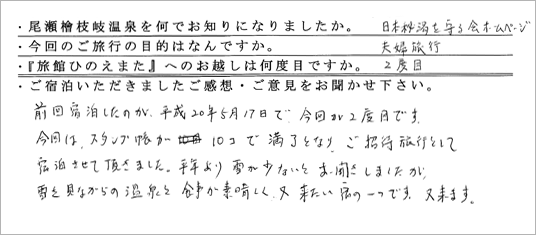 ・尾瀬檜枝岐温泉を何でお知りになりましたか。 日本秘湯を守る会ホームページ
・今回のご旅行の目的はなんですか。 夫婦旅行
・『旅館ひのえまた』へのお越しは何度目ですか。 2度目
・ご宿泊いただきましたご感想・ご意見をお聞かせ下さい。
前回宿泊したのが、平成20年5月17日で、今回が2度目です。
今回は、スタンプ帳が 10コで満了となり、ご招待旅行として
宿泊させて頂きました。平年より雪が少ないとお聞きしましたが、
雪を見ながらの温泉と食事が素晴しく、又来たい宿の一つです。又来ます。